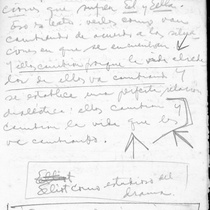 ciones que sufren Sol y ella.
Eso es todo: verlos como van
cambiando de acuerdo a las situa
ciones en que se encuentran
Y ellos cambian porque la vida alrede
dor de ellos va cambiando. Y
se establece una perfecta relación
dialéctica: ellos cambian Y
cambian la vida que los
va cambiando.
Eliot
Eliot como estudioso del
drama.